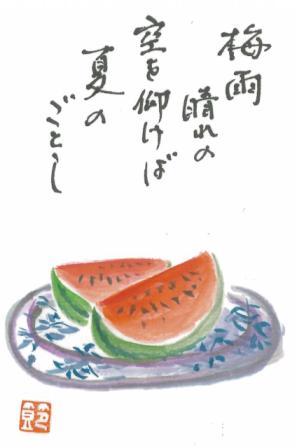 梅雨
晴れの
空を仰げば
夏の
ごとし